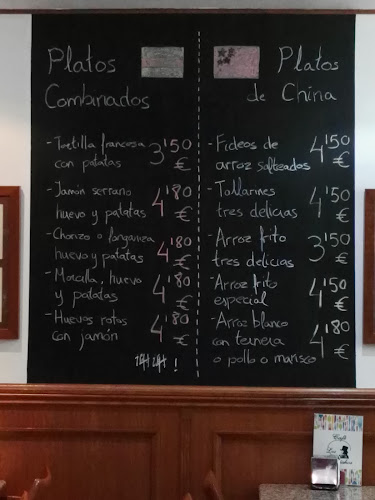 Platos
Combinados
- Tortilla francesa
con patatas
3'50
€
- Jamón serrano
huevo y patatas
4'80
€
- Chorizo o longaniza
huevo y patatas
4'80
€
- Morcilla, huevo
y patatas
4'80
€
- Huevos rotos
con jamón
4'80
€
Platos
de China
- Fideos de
arroz salteados
4'50
€
- Tallarines
tres delicias
4'50
€
- Arroz frito
tres delicias
3'50
€
- Arroz frito
especial
4'50
€
- Arroz blanco
con ternera
o pollo o marisco
4'80
€
Café